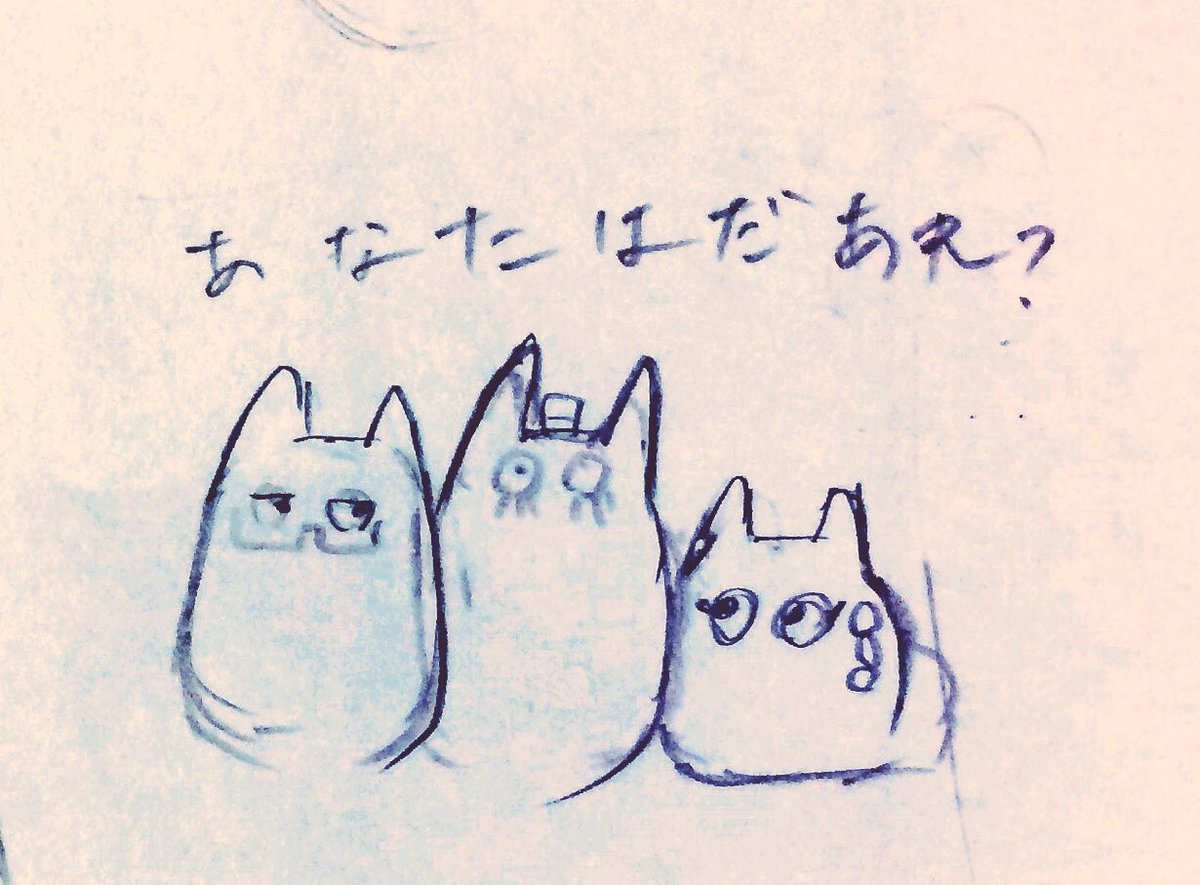 あなたはだあれ?